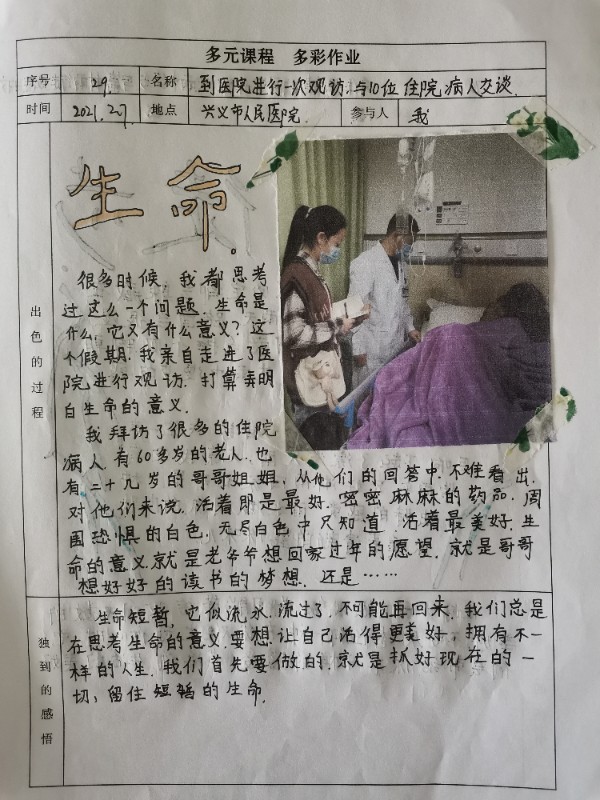 多元课程 多彩作业
序号 29. 名称 到医院进行一次观访.与10位住院病人交谈.
时间 2021.2.7 地点 兴义市人民医院. 参与人 我
生命。
出色的过程
很多时候,我都思考
过这么一个问题.生命是
什么,它又有什么意义?这
个假期.我亲自走进了医
院进行观访.打算弄明
白生命的意义.
我拜访了很多的住院
病人.有60多岁的老人.也
有二十几岁的哥哥姐姐,从他们的回答中.不难看出.
对他们来说.活着即是最好.密密麻麻的药品.周
围恐惧的白色,无尽白色中只知道.活着最美好.生
命的意义.就是老爷爷想回家过年的愿望.就是哥哥
想好好的读书的梦想.还是……
独到的感悟
生命短暂,它似流水.流过了.不可能再回来.我们总是
在思考生命的意义.要想让自己活得更美好,拥有不一
样的人生.我们首先要做的.就是抓好现在的一
切,留住短暂的生命.